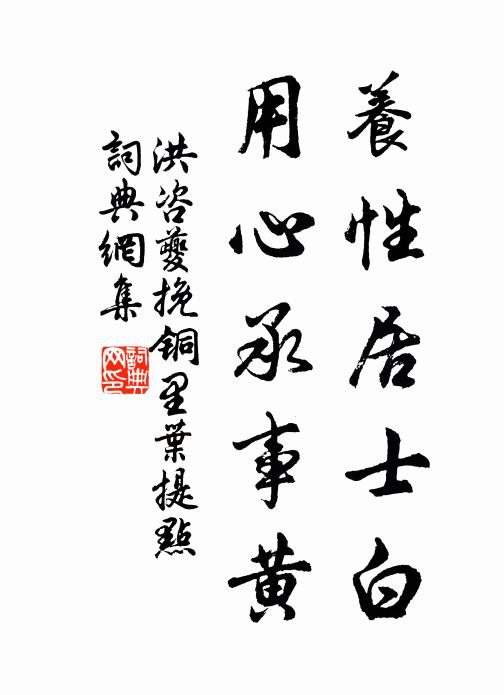 養性居士白
用心承事黃
洪咨夔挽銅里葉提點
詞典網集
詞典網印